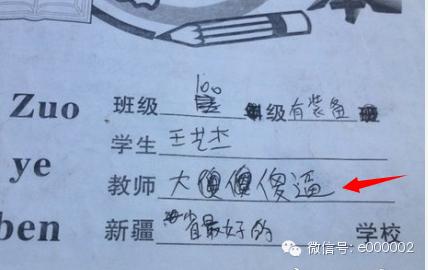 Zuo
ye
ben
班级 100 级有装备
学生 王艺杰
教师 大傻逼
新疆 省最好的 学校
微信号: e000002